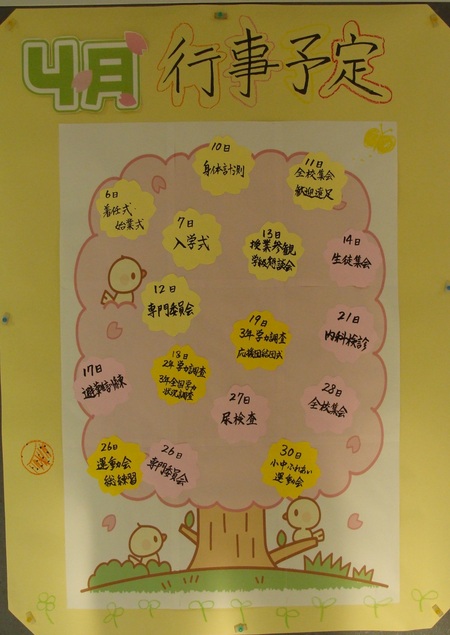 4月 行事予定
10日
身体計測
11日
全校集会
歓迎遠足
6日
着任式
始業式
7日
入学式
13日
授業参観
学級懇談会
14日
生徒集会
12日
専門委員会
19日
3年学力調査
応援団結団式
21日
内科検診
18日
2年学力調査
3年全国学力
状況調査
17日
避難訓練
27日
尿検査
28日
全校集会
26日
運動会
総練習
26日
専門委員会
30日
小中ふれあい
運動会